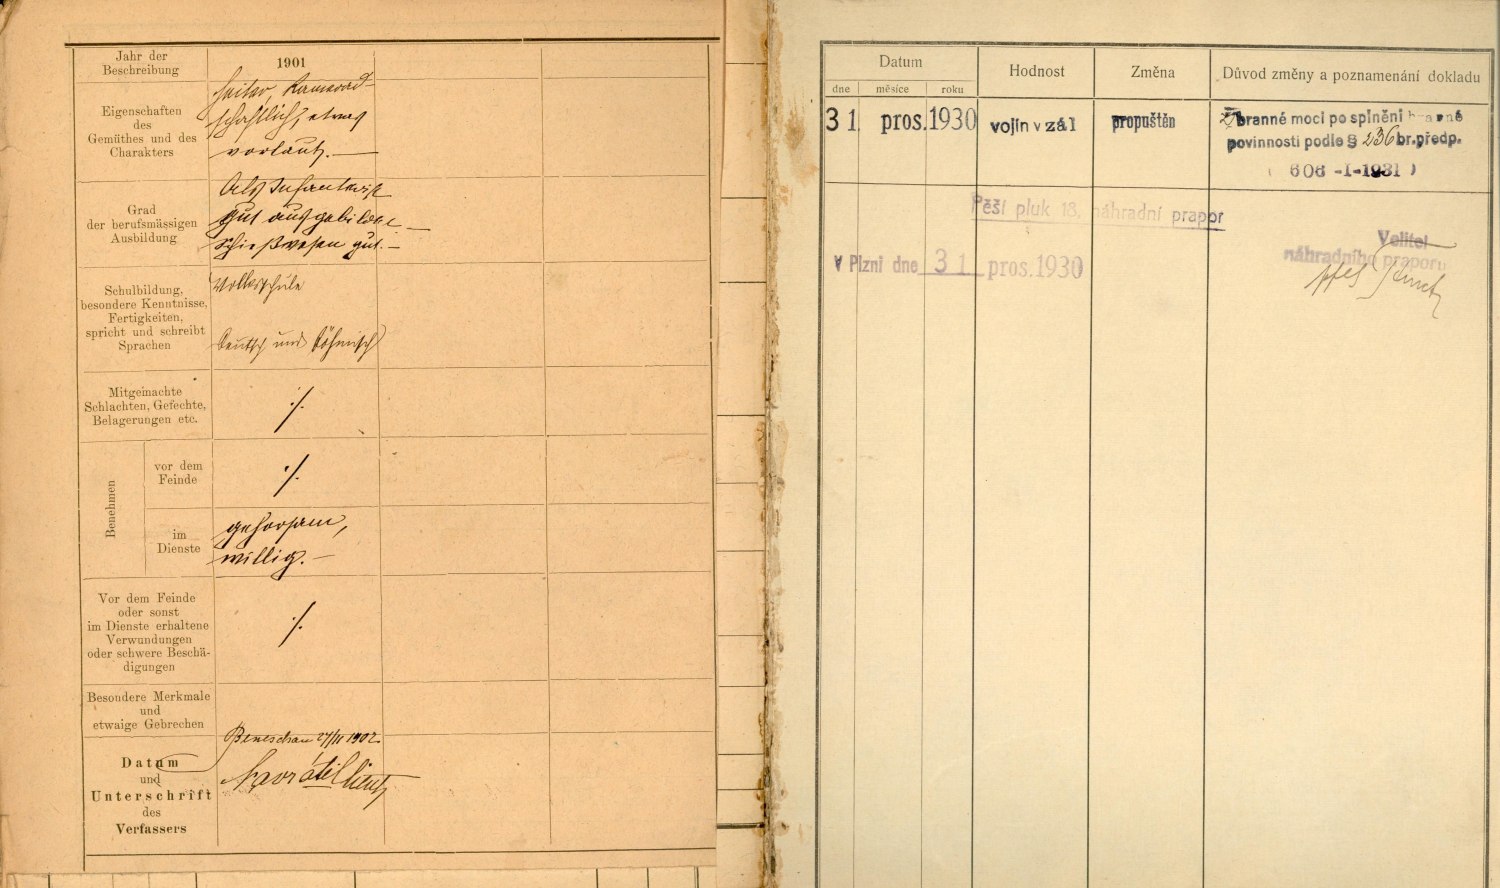 Jahr der
Beschreibung
1901
Eigenschaften
des
Gemüthes und des
Charakters
heiter, kamerad-
schaftlich, etwas
vorlaut. —
Grad
der berufsmässigen
Ausbildung
Als Infanterist
gut ausgebildet —
Schießwesen gut. —
Schulbildung,
besondere Kenntnisse,
Fertigkeiten,
spricht und schreibt
Sprachen
Volksschule
deutsch und böhmisch
Mitgemachte
Schlachten, Gefechte,
Belagerungen etc.
./.
Benehmen
vor dem
Feinde
./.
im
Dienste
gehorsam,
willig. —
Vor dem Feinde
oder sonst
im Dienste erhaltene
Verwundungen
oder schwere Beschä-
digungen
./.
Besondere Merkmale
und
etwaige Gebrechen
Datum
und
Unterschrift
des
Verfassers
Beneschau 27/II 1902.
Navrátil
Datum
dne
měsíce
roku
Hodnost
Změna
Důvod změny a poznamenání dokladu
31. pros. 1930
vojín v zál
propuštěn
z branné moci po splnění branné
povinnosti podle § 236 br. předp.
( 606 -I-1931 )
Pěší pluk 18, náhradní prapor
V Plzni dne 31 pros. 1930
Velitel
náhradního praporu